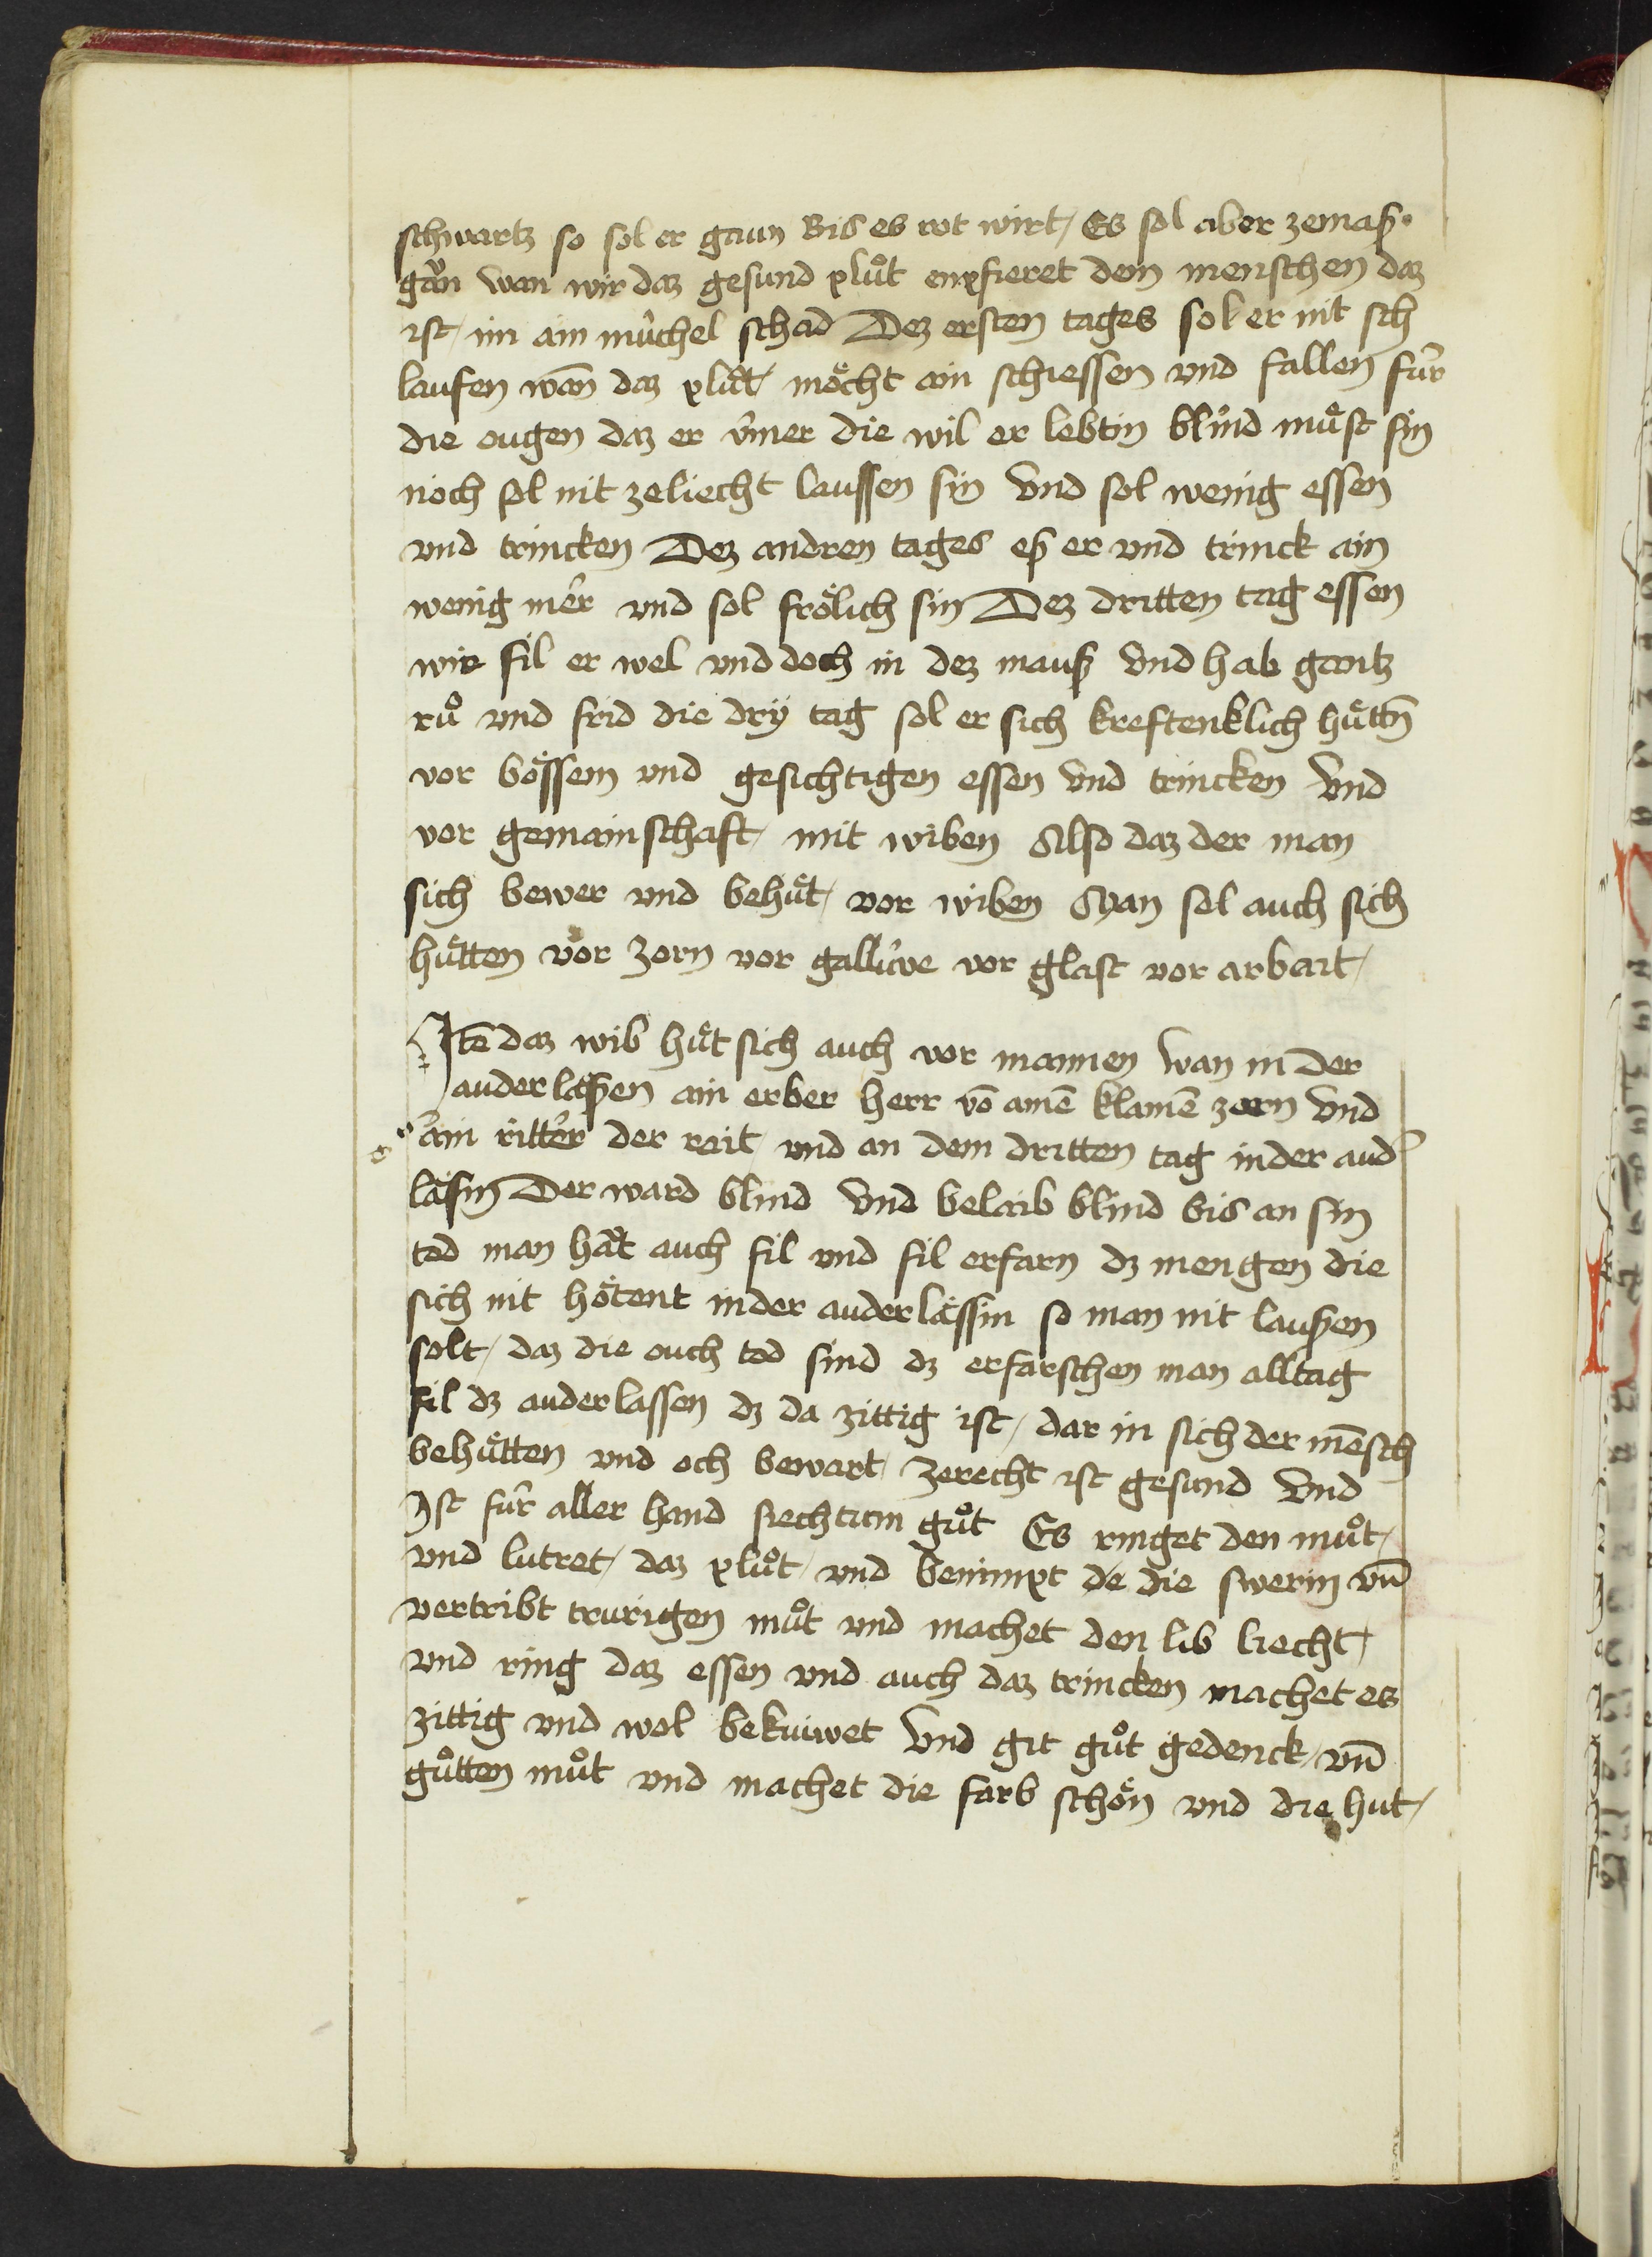 schwartz so sol er gaun Bis es rot wirt / Es sol aber zemaß ·
gan̊ wan wir daz gesund plůt enpfieret dem menschen daz
ist / im ain michel schad Dez ersten tages sol er nit sch
laufen wan̄ daz plůt / möcht ain schiessen vnd fallen für
die ougen daz er ymer die wil er lebtin blind müst sin
noch sol nit zeliecht laussen sin vnd sol wenig essen
vnd trincken Dez andren tages eß er vnd trinck ain
wenig mer vnd sol frölich sin Dez dritten tag essen
wie fil er wel vnd doch in dez mauß vnd hab gantz
rů vnd frid die dry tag sol er sich kreftenklich hüttn̄
vor bössem vnd gesichtigen essen vnd trincken vnd
vor gemainschaft / mit wiben Also daz der man
sich bewer vnd behüt / vor wiben Man sol auch sich
hütten vor zorn vor vor glast vor arbait /
Itē daz wib hüt sich auch vor mannen wan in der
auderläßen ain erber herr vō ainē klainē zorn vnd
ain ritter der rait / vnd an dem dritten tag in der aud
läsin Der ward blind vnd belaib blind bis an sin
tod man hät auch fil vnd fil erfarn dz mengen die
sich nit hötent in der auderlässin so man nit laußen
solt / daz die ouch tod sind dz erfarschen man alltag
fil dz auderlassen dz da zittig ist / dar in sich der mēsch
behütten vnd och bewart / zerecht ist gesund vnd
Ist für aller hand siechtum gůt Es ringet den můt /
vnd lutret / daz plůt / vnd benimpt de die swerin vn̄
vertribt trurigen můt vnd machet den lib liecht /
vnd ring daz essen vnd auch daz trincken machet es
zittig vnd wol bekuiwet vnd git gůt gedenck / vn̄
gůtten můt vnd machet die farb schön vnd die hut /